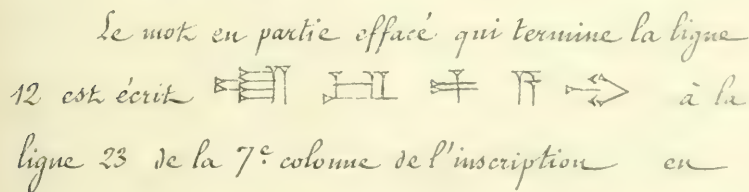 Le mot en partie effacé qui termine la ligne
12 est écrit à la
ligne 23 de la 7e colonne de l'inscription en